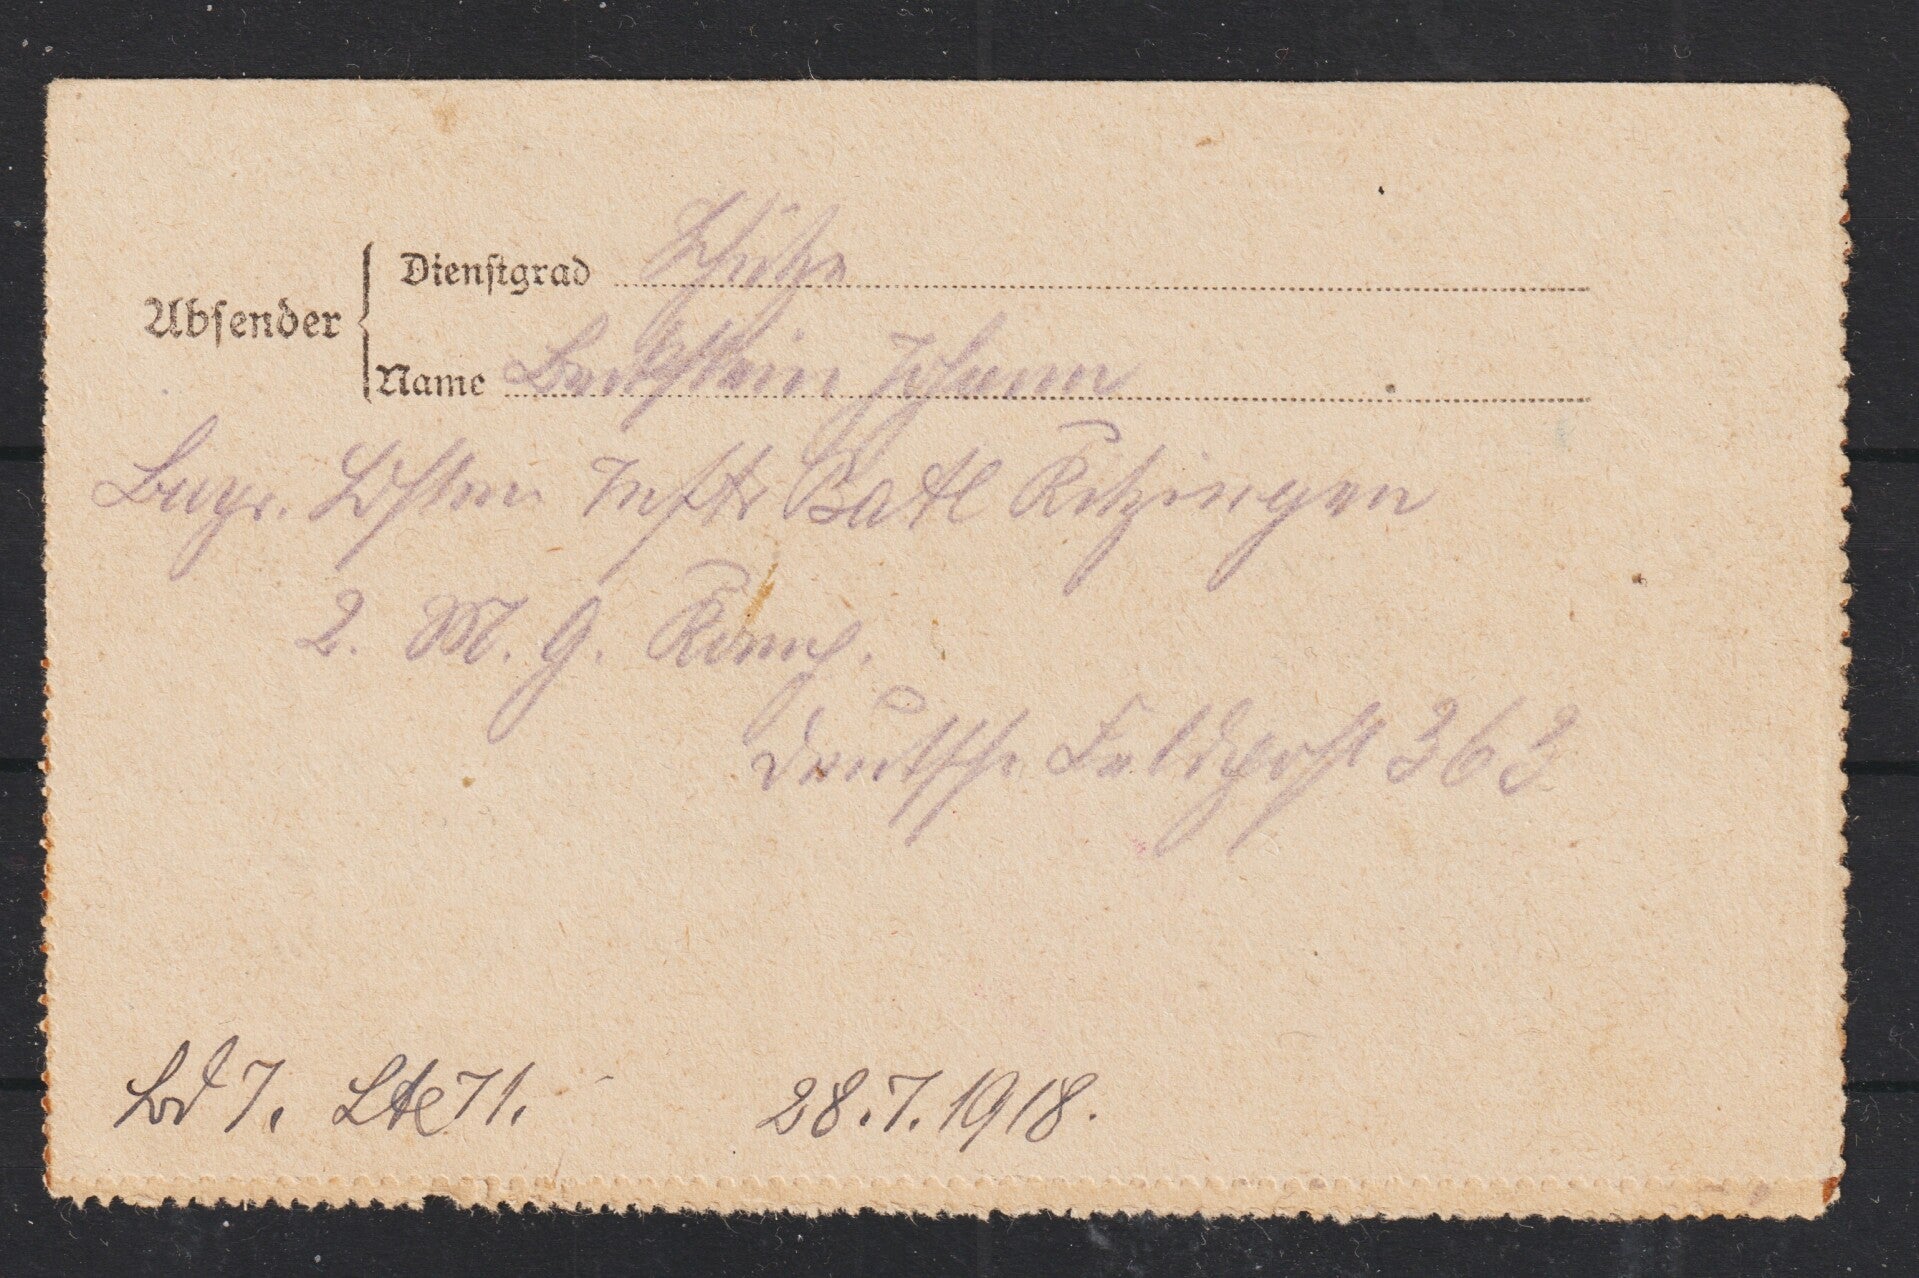 Absender
Dienstgrad Schütze
Name Johann
Bayr. Ldstm Inftr Batl Kitzingen
2. M. G. Komp.
Deutsche Feldpost 363
7. 71. 28.7.1918.